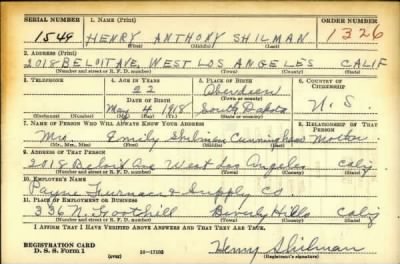 SERIAL NUMBER 1. NAME (Print) ORDER NUMBER
1549 HENRY ANTHONY SHILMAN 1326
(First) (Middle) (Last)
2. ADDRESS (Print)
2018 BELOIT AVE, WEST LOS ANGELES CALIF
(Number and street or R. F. D. number) (Town) (County) (State)
3. TELEPHONE 4. AGE IN YEARS 5. PLACE OF BIRTH 6. COUNTRY OF CITIZENSHIP
22 Aberdeen
DATE OF BIRTH (Town or county)
May 4 1918 South Dakota U. S.
(Exchange) (No.) (Mo.) (Day) (Yr.) (State or country)
7. NAME OF PERSON WHO WILL ALWAYS KNOW YOUR ADDRESS 8. RELATIONSHIP OF THAT PERSON
Mrs. Emily Shilman Cunningham Mother
(Mr., Mrs., Miss) (First) (Middle) (Last)
9. ADDRESS OF THAT PERSON
2018 Beloit Ave West Los Angeles Calif
(Number and street or R. F. D. number) (Town) (County) (State)
10. EMPLOYER'S NAME
Payne Furnace & Supply Co
11. PLACE OF EMPLOYMENT OR BUSINESS
336 N. Foothill Beverly Hills Calif
(Number and street or R. F. D. number) (Town) (County) (State)
I AFFIRM THAT I HAVE VERIFIED ABOVE ANSWERS AND THAT THEY ARE TRUE.
REGISTRATION CARD
D. S. S. Form 1 (over) 16—17105 Henry Shilman
(Registrant's signature)